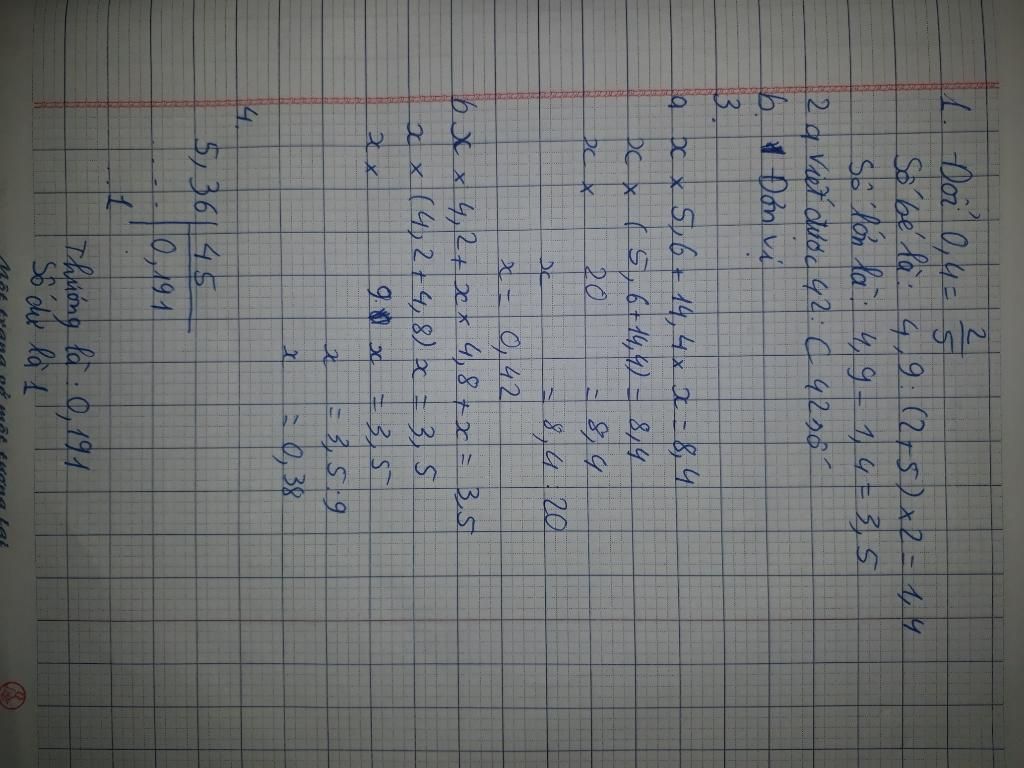 1. Đổi 0,4 = 2/5
Số bé là: 4,9 : (2+5) x 2 = 1,4
Số lớn là: 4,9 - 1,4 = 3,5
2 a viết được 42 : C 42 số
b. Đơn vị
3.
a x x 5,6 + 14,4 x x = 8,4
x x (5,6 + 14,4) = 8,4
x x 20 = 8,4
x = 8,4 : 20
x = 0,42
b. x x 4,2 + x x 4,8 + x = 3,5
x x (4,2 + 4,8) x = 3,5
x x 9 x = 3,5
x = 3,5 : 9
x = 0,38
4.
5,36 45
0,191
1
Thương là : 0,191
Số dư là 1